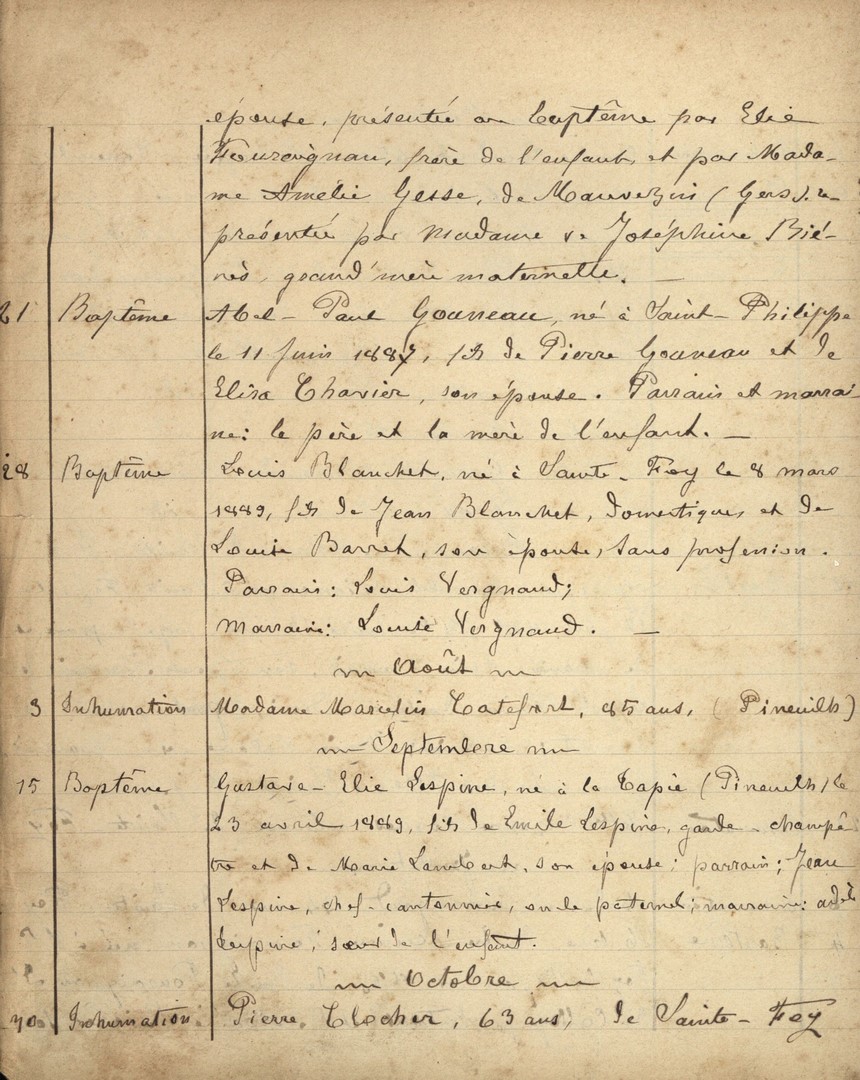 épouse, présentée au baptême par Elie
frère de l'enfant, et par Mada-
me Amélie Gesse, de Mauvezin (Gers), re-
présentée par Madame Joséphine Bié-
nès, grand'mère maternelle. —
21 Baptême Abel-Paul Gouneau, né à Saint-Philippe
le 11 Juin 1887, fils de Pierre Gouneau et de
Eliza Chavier, son épouse. Parrain et marrai-
ne: le père et la mère de l'enfant. —
28 Baptême Louis Blanchet, né à Sainte-Foy le 8 mars
1889, fils de Jean Blanchet, domestique, et de
Louise Barret, son épouse, sans profession.
Parrain: Louis Vergnaud;
Marraine: Louise Vergnaud. —
Août
3 Inhumation Madame Marcelin 85 ans, (Pineuilh)
Septembre
15 Baptême Gustave-Elie Lespine, né à la Tapie (Pineuilh) le
23 avril 1889, fils de Emile Lespine, garde-champê
tre et de Marie Lambert, son épouse; parrain; Jean
Lespine, chef-cantonnier, oncle paternel; marraine: adèle
Lespine, sœur de l'enfant.
Octobre
Inhumation Pierre Clocher, 63 ans, de Sainte-Foy